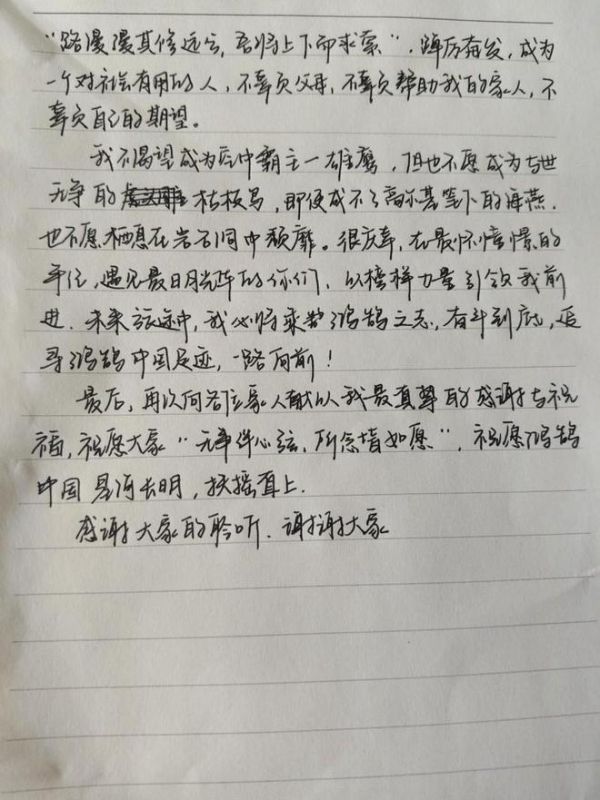 “路漫漫其修远兮，吾将上下而求索”，踔厉奋发，成为
一个对社会有用的人，不辜负父母，不辜负帮助我的家人，不
辜负自己的期望。
我不渴望成为空中霸主—雄鹰，但也不愿成为与世
无争的枯枝鸟，即便成不了高尔基笔下的海燕，
也不愿栖息在岩石洞中颓靡。很庆幸，在最怀憧憬的
年纪，遇见最日月光阵的你们，以榜样力量引领我前
进．未来旅途中，我必将乘鸿鹄之志，奋斗到底，追
寻鸿鹄中国足迹，一路向前！
最后，再次向各位家人献以我最真挚的感谢与祝
福，祝愿大家“无事绊心弦，所念皆如愿”，祝愿鸿鹄
中国星河长明，扶摇直上．
感谢大家的聆听．谢谢大家